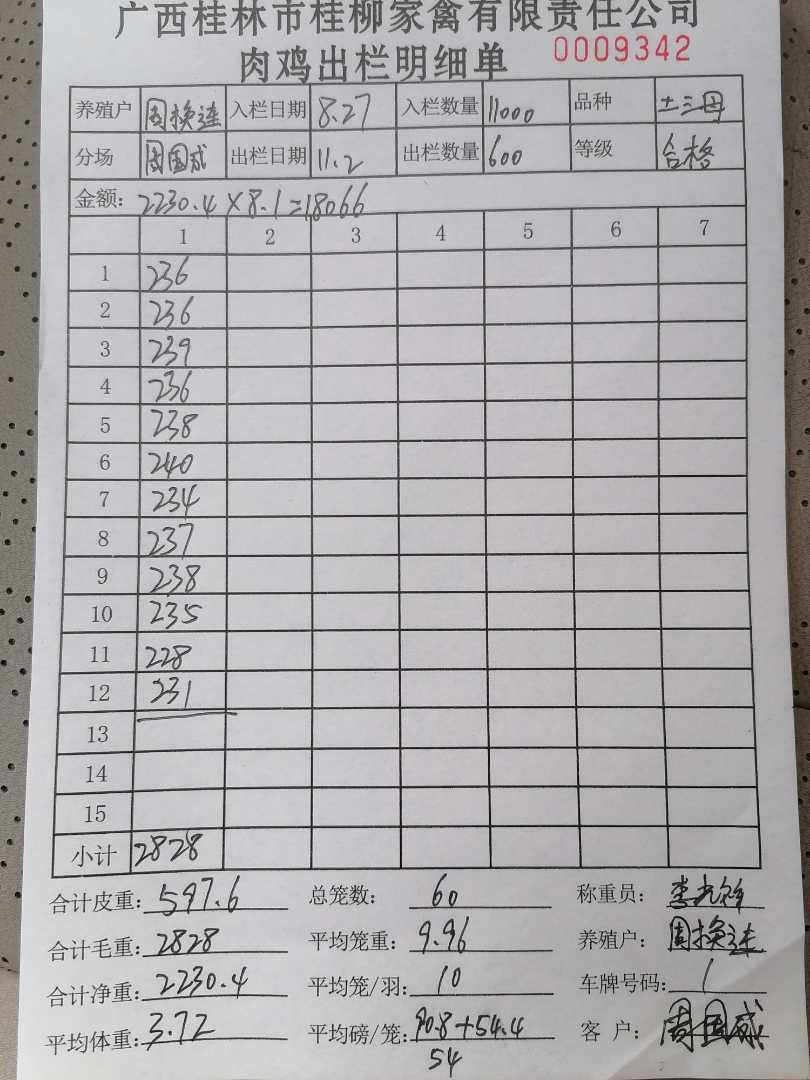 广西桂林市桂柳家禽有限责任公司
肉鸡出栏明细单 0009342
养殖户 周换连 入栏日期 8.27 入栏数量 11000 品种 土三母
分场 周国威 出栏日期 11.2 出栏数量 600 等级 合格
金额: 2230.4×8.1=18066
1 2 3 4 5 6 7
1 236
2 236
3 239
4 236
5 238
6 240
7 234
8 237
9 238
10 235
11 228
12 231
13
14
15
小计 2828
合计皮重: 597.6 总笼数: 60 称重员: 李
合计毛重: 2828 平均笼重: 9.96 养殖户: 周换连
合计净重: 2230.4 平均笼/羽: 10 车牌号码: /
平均体重: 3.72 平均磅/笼: 90.8+54.4 客户: 周国威
54